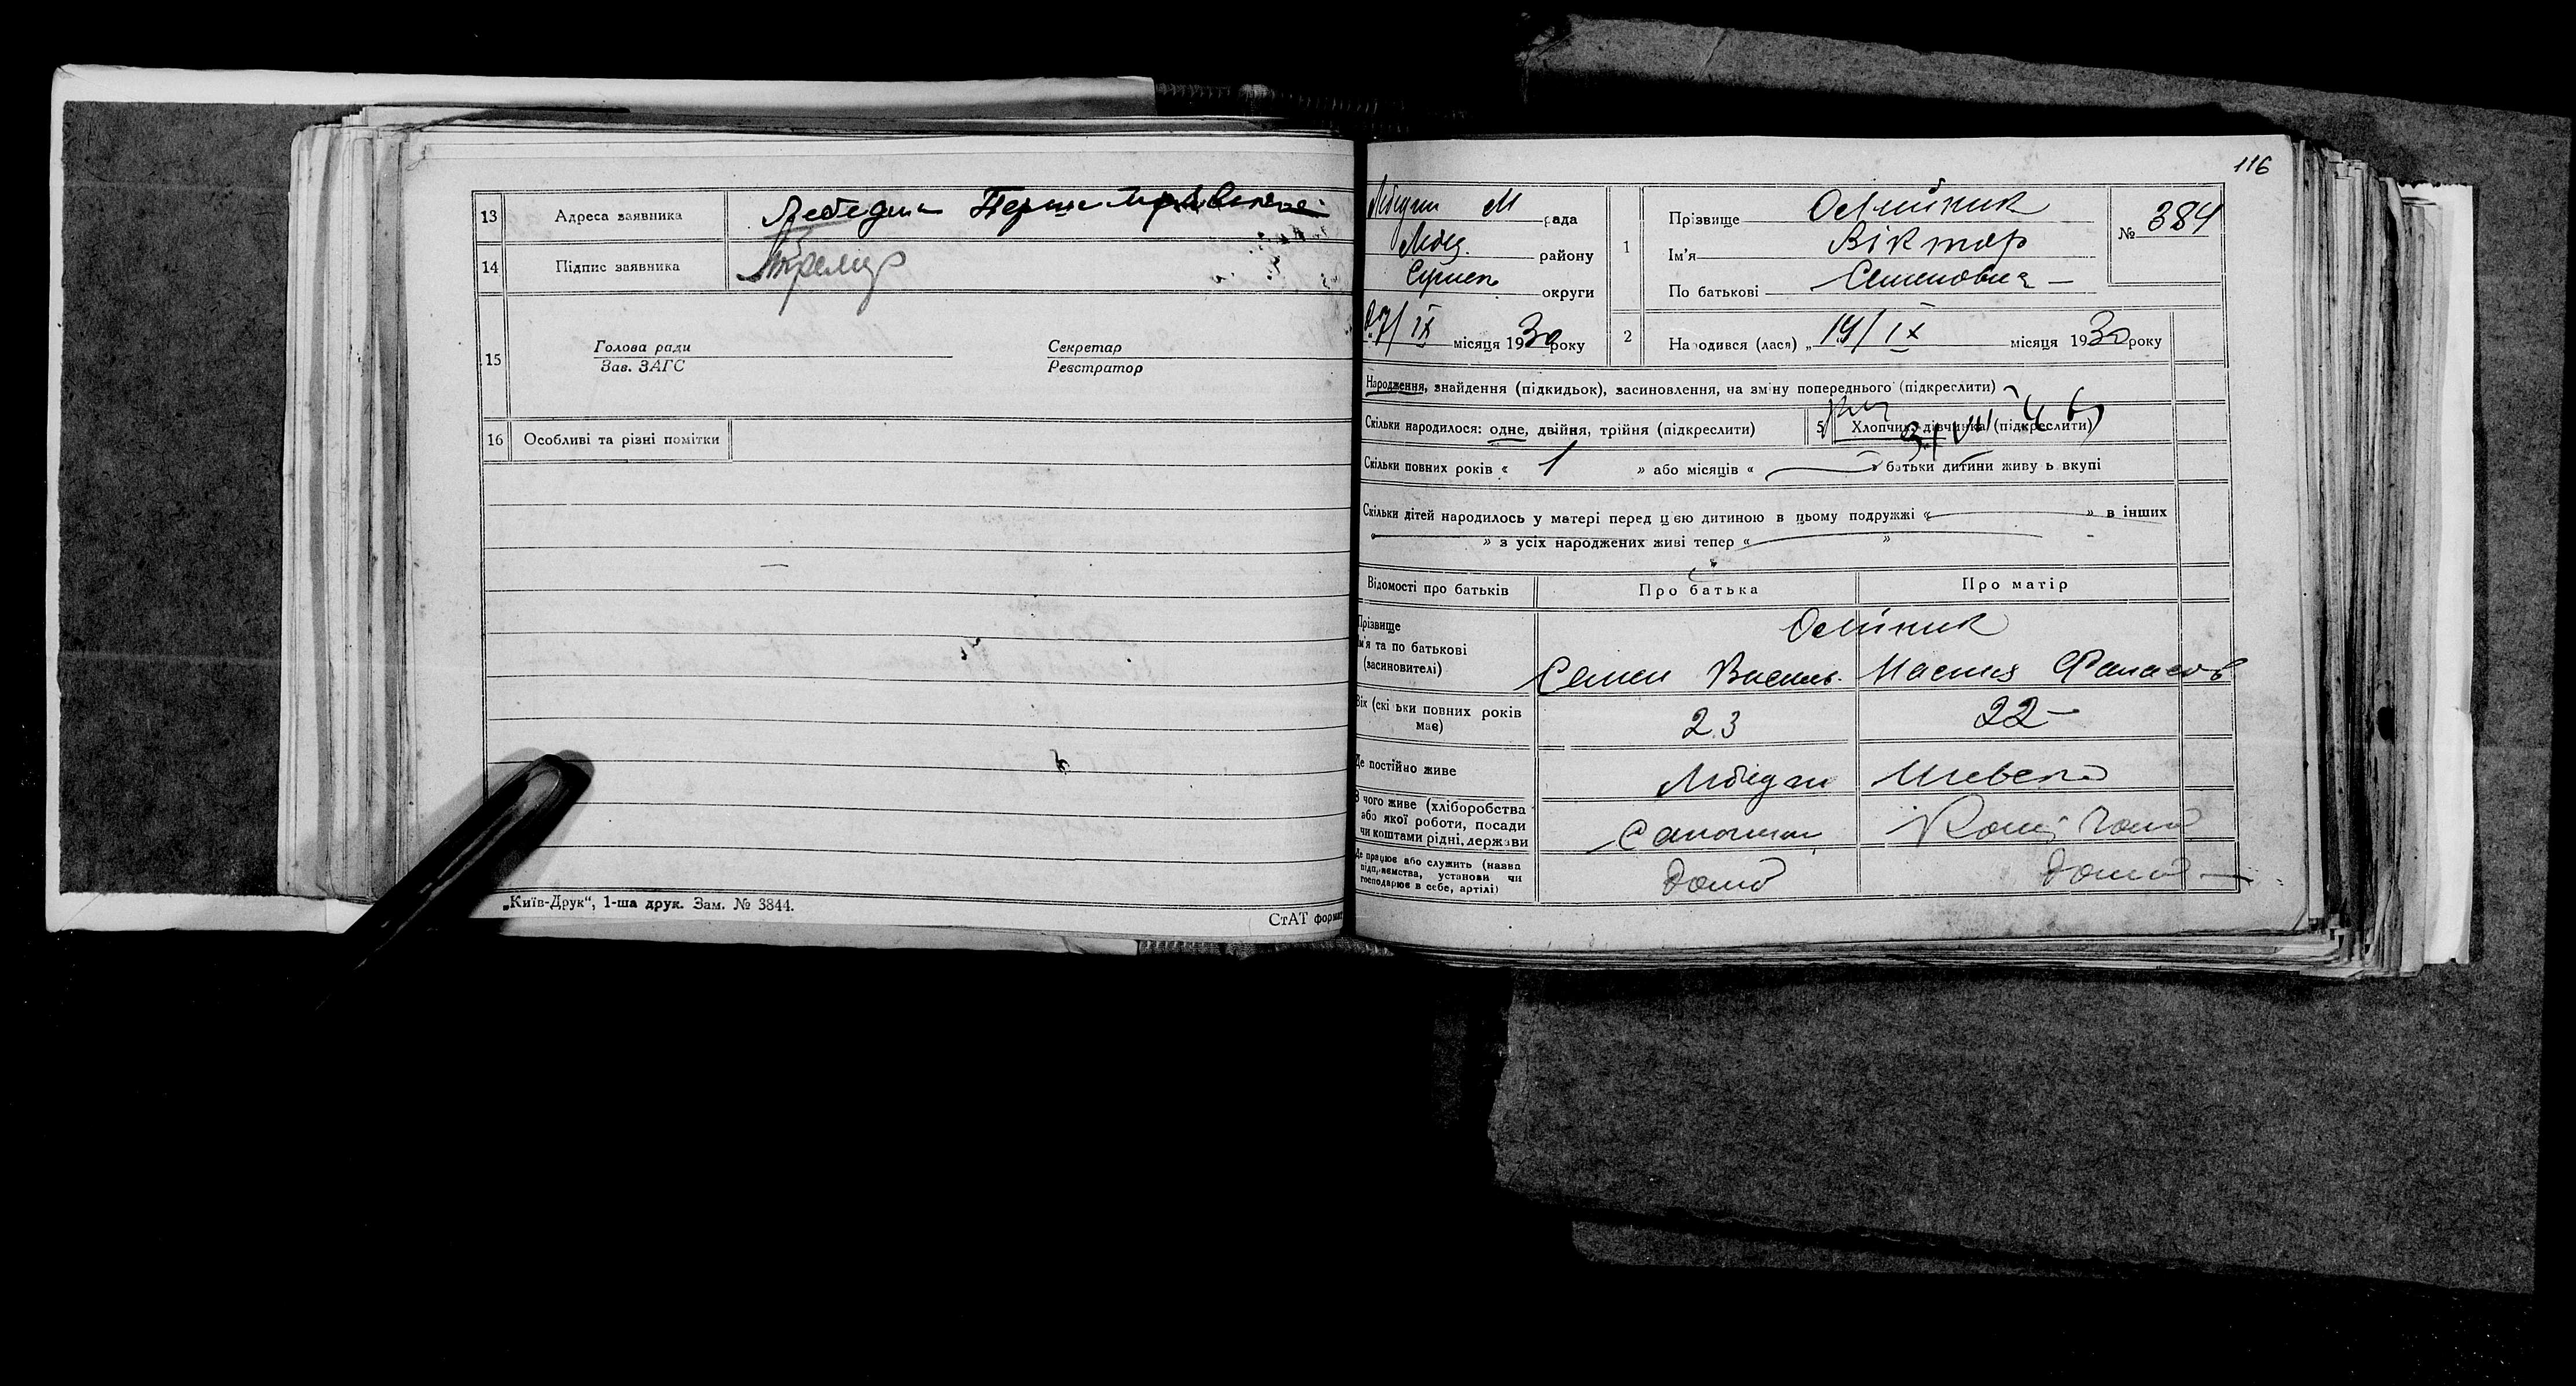 13 Адреса заявника Лебедин Перше
14 Підпис заявника
15 Голова ради Секретар
Зав. ЗАГС Реєстратор
16 Особливі та різні помітки
„Київ-Друк“, 1-ша друк. Зам. № 3844.
СтАТ формат
116
Лебедин М рада
Лебед. району
Сумськ округи
27/IX місяця 1930 року
1 Прізвище Олійник
Ім'я Віктор
По батькові Семенович
№ 384
2 Народився (лася) „ 14/IX місяця 1930 року
Народження, знайдення (підкидьок), засиновлення, на зміну попереднього (підкреслити)
Скільки народилося: одне, двійня, трійня (підкреслити) 5 Хлопчик, дівчинка (підкреслити)
Скільки повних років « 1 » або місяців « » батьки дитини живуть вкупі
Скільки дітей народилось у матері перед цією дитиною в цьому подружжі « » в інших
» з усіх народжених живі тепер « »
Відомості про батьків Про батька Про матір
Прізвище Олійник
Ім'я та по батькові
(засиновителі) Семен Василь.
Вік (скільки повних років має) 23 22
Де постійно живе Лебедин
З чого живе (хліборобства
або якої роботи, посади
чи коштами рідні, держави
Де працює або служить (назва
підприємства, установи чи
господарює в себе, артілі) дома дома